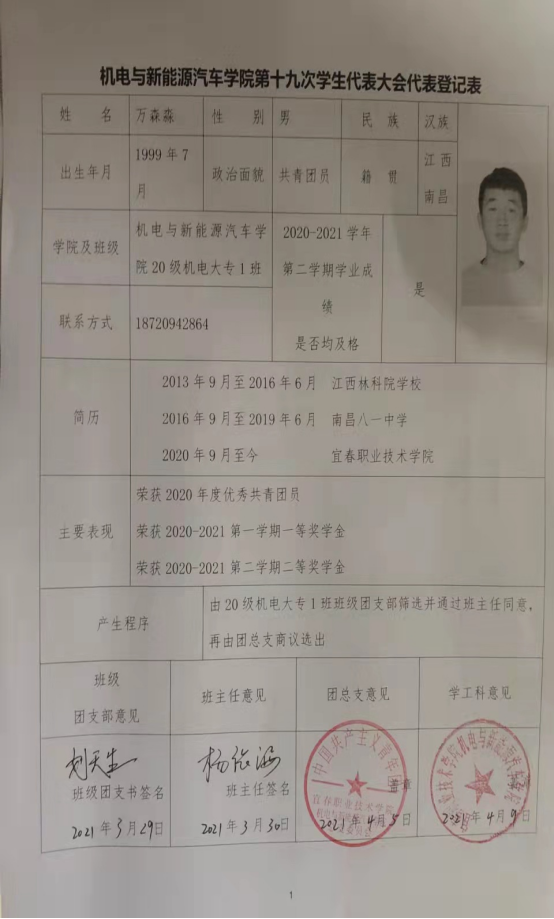 机电与新能源汽车学院第十九次学生代表大会代表登记表
姓 名 万森淼 性 别 男 民 族 汉族
出生年月 1999年7月 政治面貌 共青团员 籍 贯 江西南昌
学院及班级 机电与新能源汽车学院20级机电大专1班
2020-2021学年第二学期学业成绩是否均及格 是
联系方式 18720942864
简历
2013年9月至2016年6月 江西林科院学校
2016年9月至2019年6月 南昌八一中学
2020年9月至今 宜春职业技术学院
主要表现
荣获2020年度优秀共青团员
荣获2020-2021第一学期一等奖学金
荣获2020-2021第二学期二等奖学金
产生程序
由20级机电大专1班班级团支部筛选并通过班主任同意,
再由团总支商议选出
班级团支部意见 班主任意见 团总支意见 学工科意见
刘天生
班级团支书签名 班主任签名 盖章
中国共产主义青年团
宜春职业技术学院
2021年3月29日 2021年3月30日 2021年4月5日 2021年4月9日
1